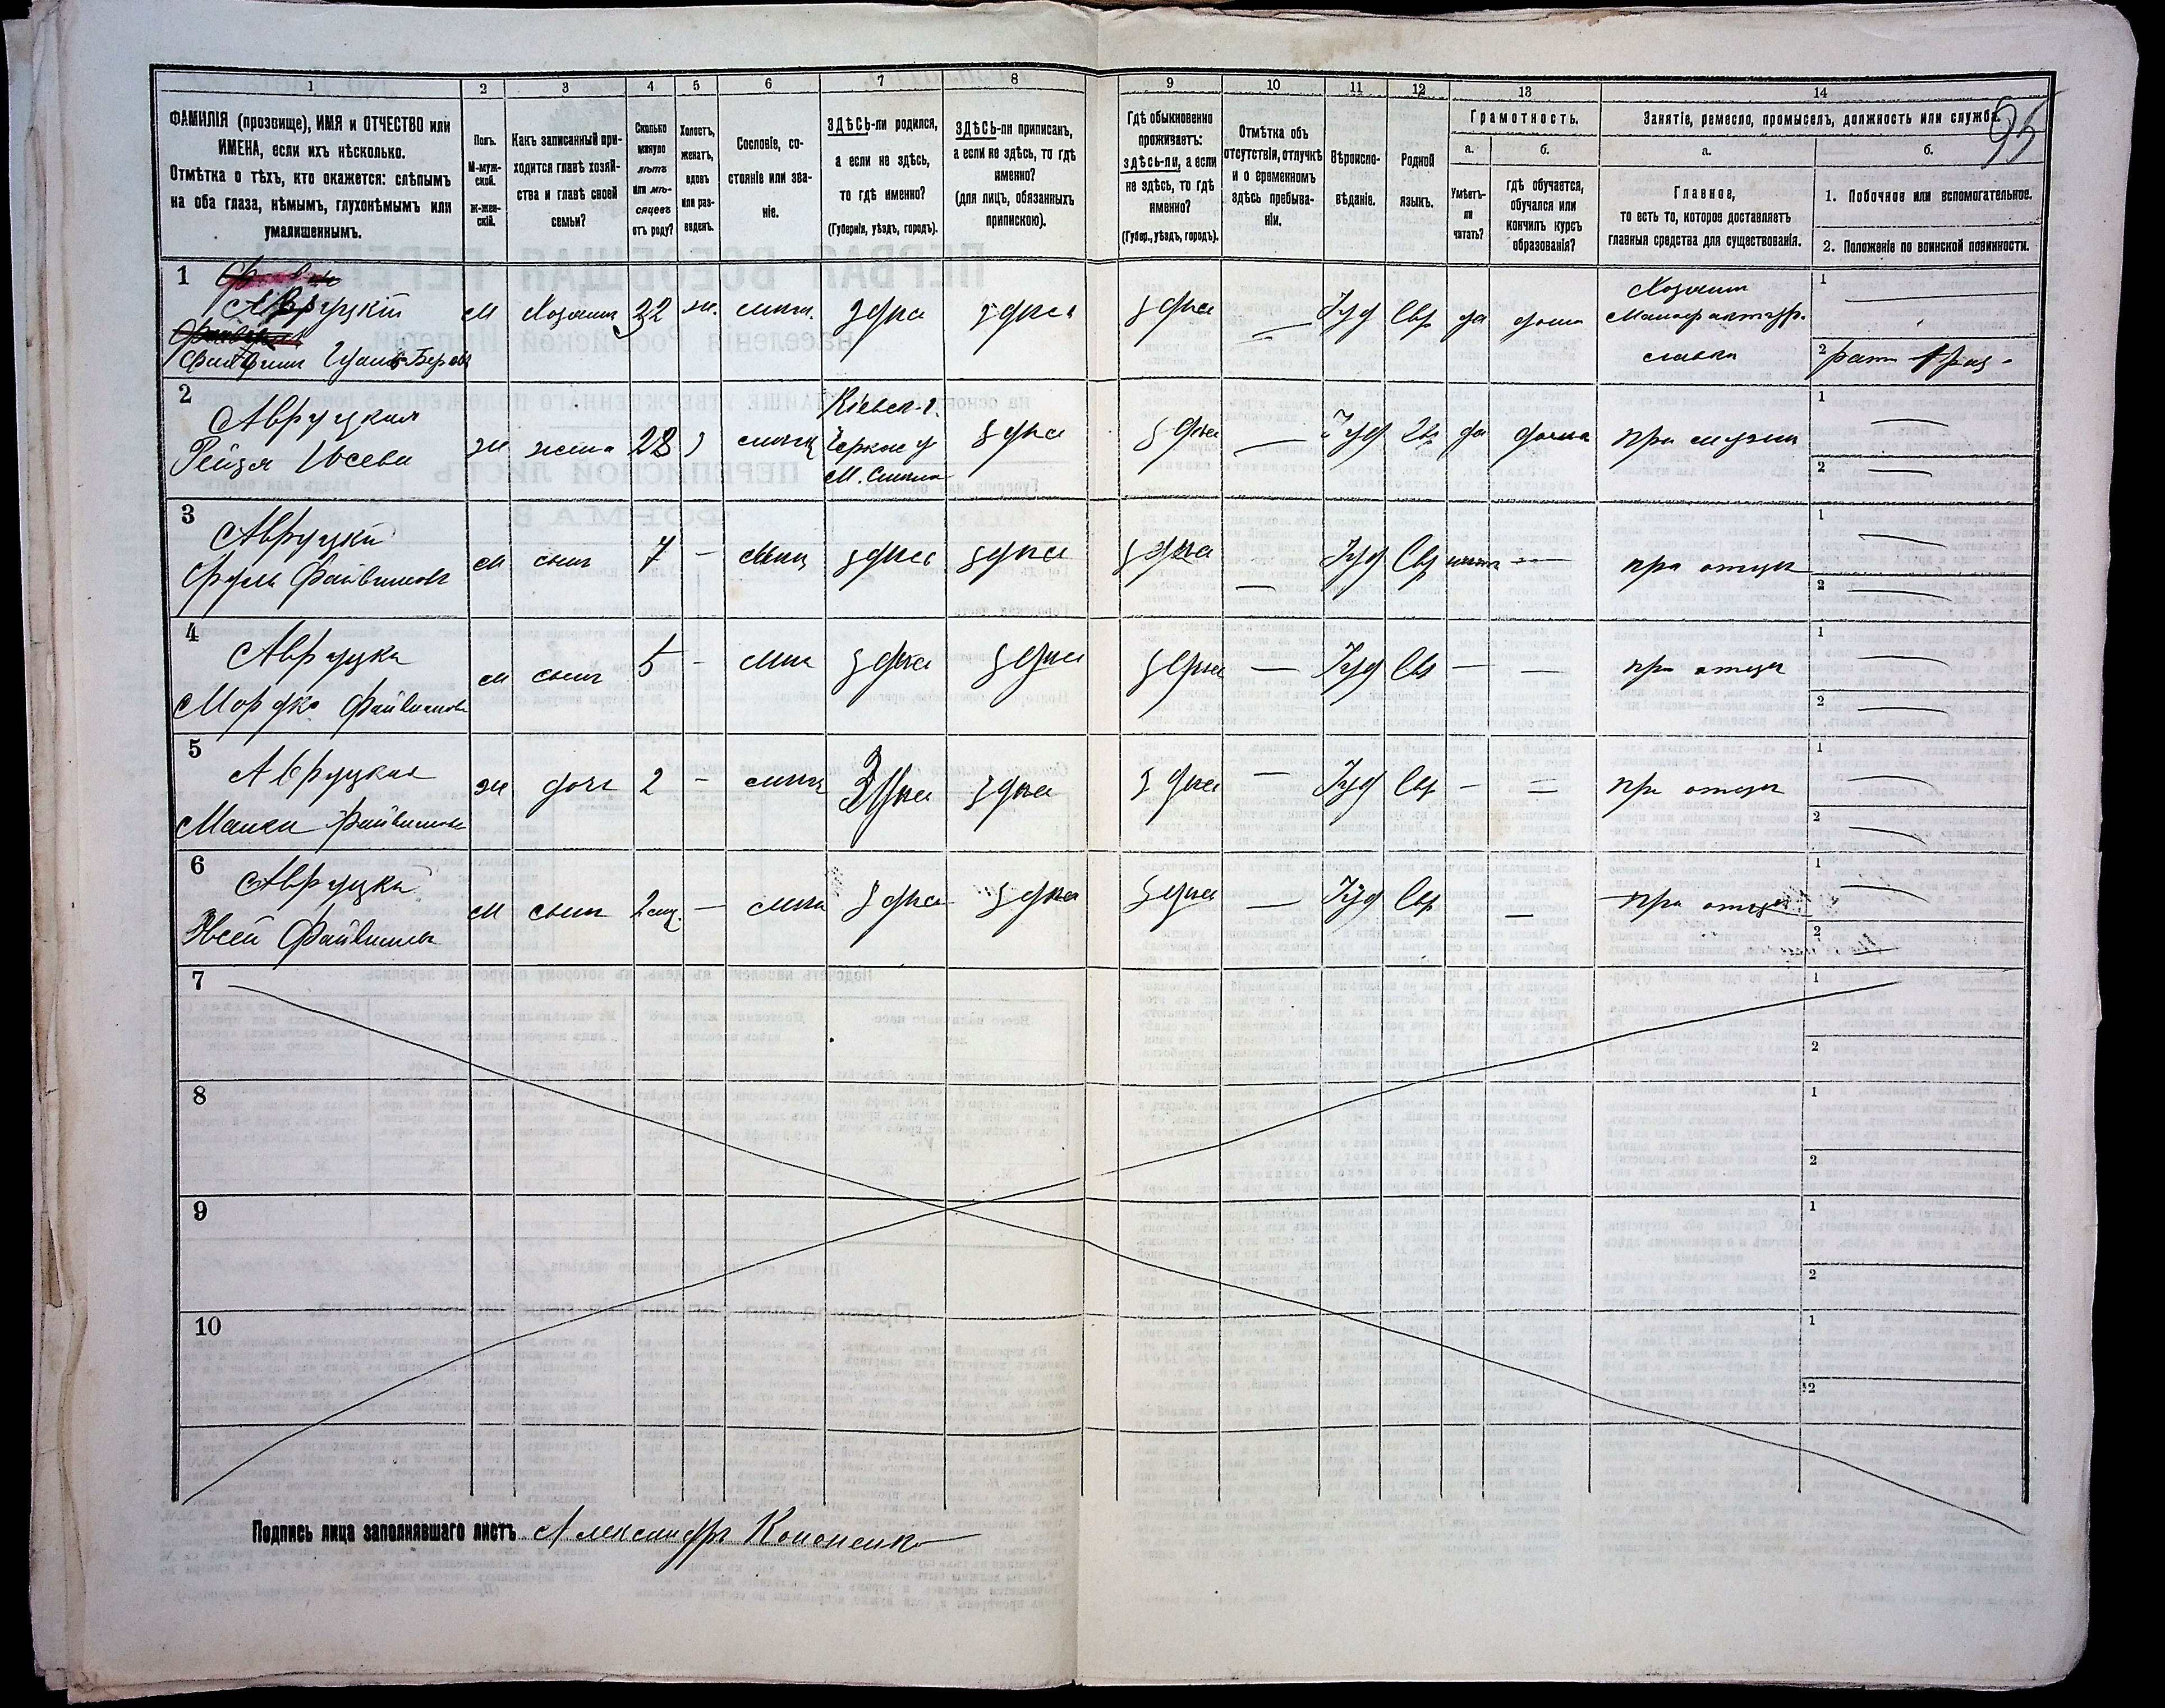 95
1 2 3 4 5 6 7 8 9 10 11 12 13 14
ФАМИЛІЯ (прозвище), ИМЯ и ОТЧЕСТВО или
ИМЕНА, если ихъ нѣсколько.
Отмѣтка о тѣхъ, кто окажется: слѣпымъ
на оба глаза, нѣмымъ, глухонѣмымъ или
умалишеннымъ.
Полъ.
М-муж-
ской.
Ж-жен-
скій.
Какъ записанный при-
ходится главѣ хозяй-
ства и главѣ своей
семьи?
Сколько
минуло
лѣтъ
или мѣ-
сяцевъ
отъ роду?
Холостъ,
женатъ,
вдовъ
или раз-
веденъ.
Сословіе, со-
стояніе или зва-
ніе.
ЗДѢСЬ-ли родился,
а если не здѣсь,
то гдѣ именно?
(Губернія, уѣздъ, городъ).
ЗДѢСЬ-ли приписанъ,
а если не здѣсь, то гдѣ
именно?
(для лицъ, обязанныхъ
припискою).
Гдѣ обыкновенно
проживаетъ:
здѣсь-ли, а если
не здѣсь, то гдѣ
именно?
(Губер., уѣздъ, городъ).
Отмѣтка объ
отсутствіи, отлучкѣ
и о временномъ
здѣсь пребыва-
ніи.
Вѣроиспо-
вѣданіе.
Родной
языкъ.
Грамотность.
а.
Умѣетъ-
ли
читать?
б.
гдѣ обучается,
обучался или
кончилъ курсъ
образованія?
Занятіе, ремесло, промыселъ, должность или служба.
а.
Главное,
то есть то, которое доставляетъ
главныя средства для существованія.
б.
1. Побочное или вспомогательное.
2. Положеніе по воинской повинности.
1
Авруцкій
м Хозяинъ 32 ж. мѣщ. здѣсь здѣсь здѣсь — Іуд Евр да дома
Хозяинъ
Мануфактур.
лавки
1 —
2
2
Авруцкая
Рейзя Іосева
ж жена 28 з мѣщ
Кіевск. г.
Черкас у
М. Смѣла
здѣсь здѣсь — Іуд Евр да дома при мужѣ
1 —
2 —
3
Авруцкій
Сруль Файвишовъ
м сынъ 7 — мѣщ здѣсь здѣсь здѣсь — Іуд Евр нѣтъ — при отцѣ
1 —
2 —
4
Авруцкій
Мордко Файвишовъ
м сынъ 5 — мѣщ здѣсь здѣсь здѣсь — Іуд Евр — — при отцѣ
1 —
2 —
5
Авруцкая
Файвишова
ж дочь 2 — мѣщ здѣсь здѣсь здѣсь — Іуд Евр — — при отцѣ
1 —
2 —
6
Авруцкій
Файвишовъ
м сынъ 2 мѣс. — мѣщ здѣсь здѣсь здѣсь — Іуд Евр — при отцѣ
1 —
2 —
7
1
2
8
1
2
9
1
2
10
1
2
Подпись лица заполнявшаго листъ Александръ Кононенко